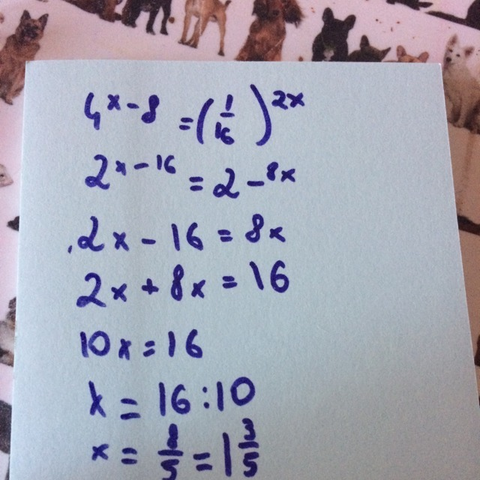 4^{x-8} = (1/16)^{2x}
2^{x-16} = 2-^{8x}
2x - 16 = 8x
2x + 8x = 16
10x = 16
x = 16 : 10
x = 8/5 = 1 3/5